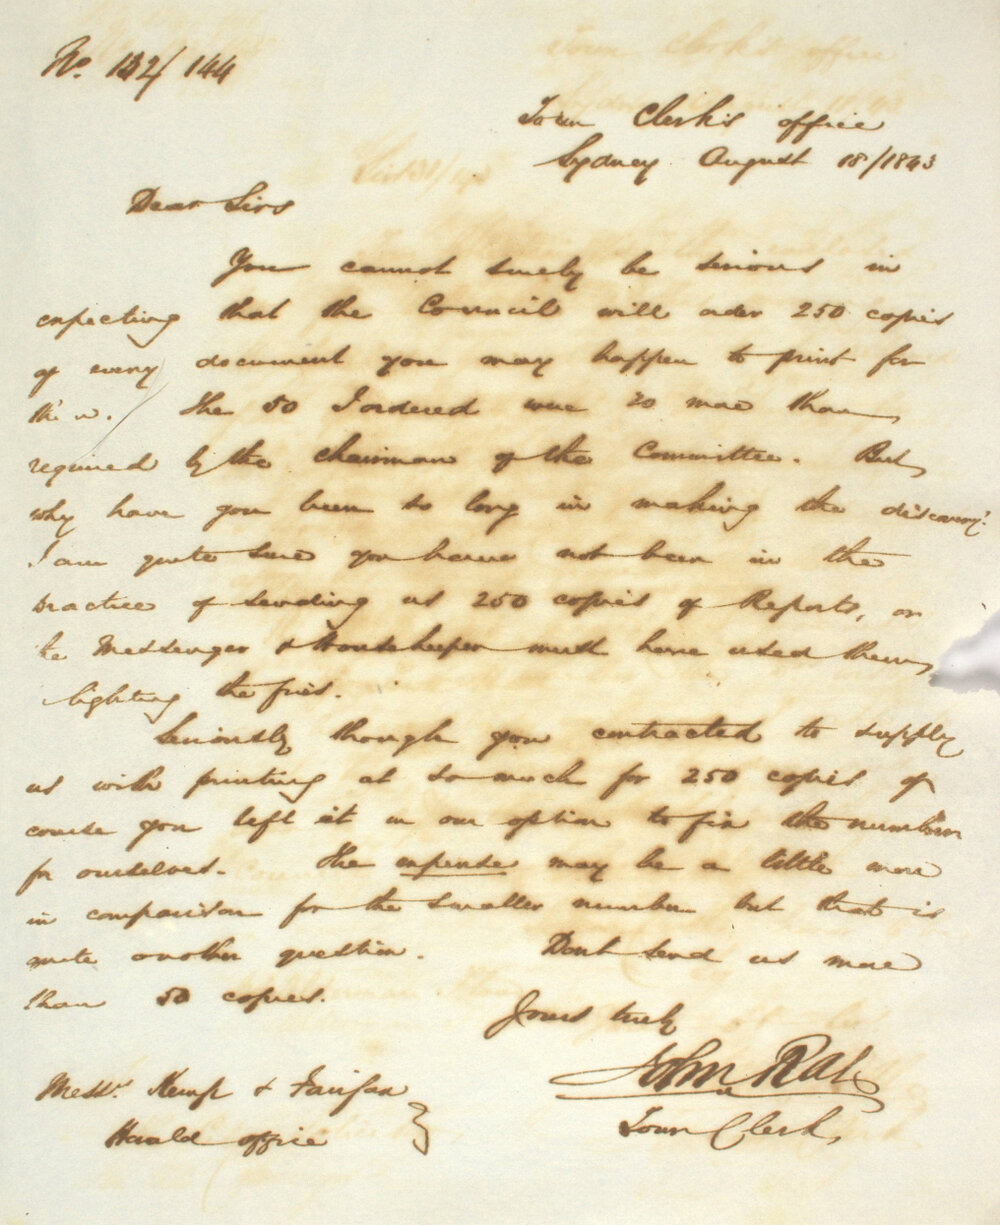 No. 132/144
Town Clerk's office
Sydney August 18/1843
Dear Sirs
You cannot surely be serious in
expecting that the Council will order 250 copies
of every document you may happen to print for
them. The 50 I ordered were 20 more than
required by the Chairman of the Committee. But
why have you been so long in making the discovery?
I am quite sure you have not been in the
practice of sending us 250 copies of Reports, or
the Messenger & Housekeeper must have used them
lighting the fires.
Seriously though you contracted to supply
us with printing at so much for 250 copies of
course you left it in our option to fix the number
for ourselves. The expense may be a little more
in comparison for the smaller number but that is
quite another question. Dont send us more
than 50 copies.
Yours truly
John Rae
Town Clerk
Messrs. Kemp & Fairfax
Herald office